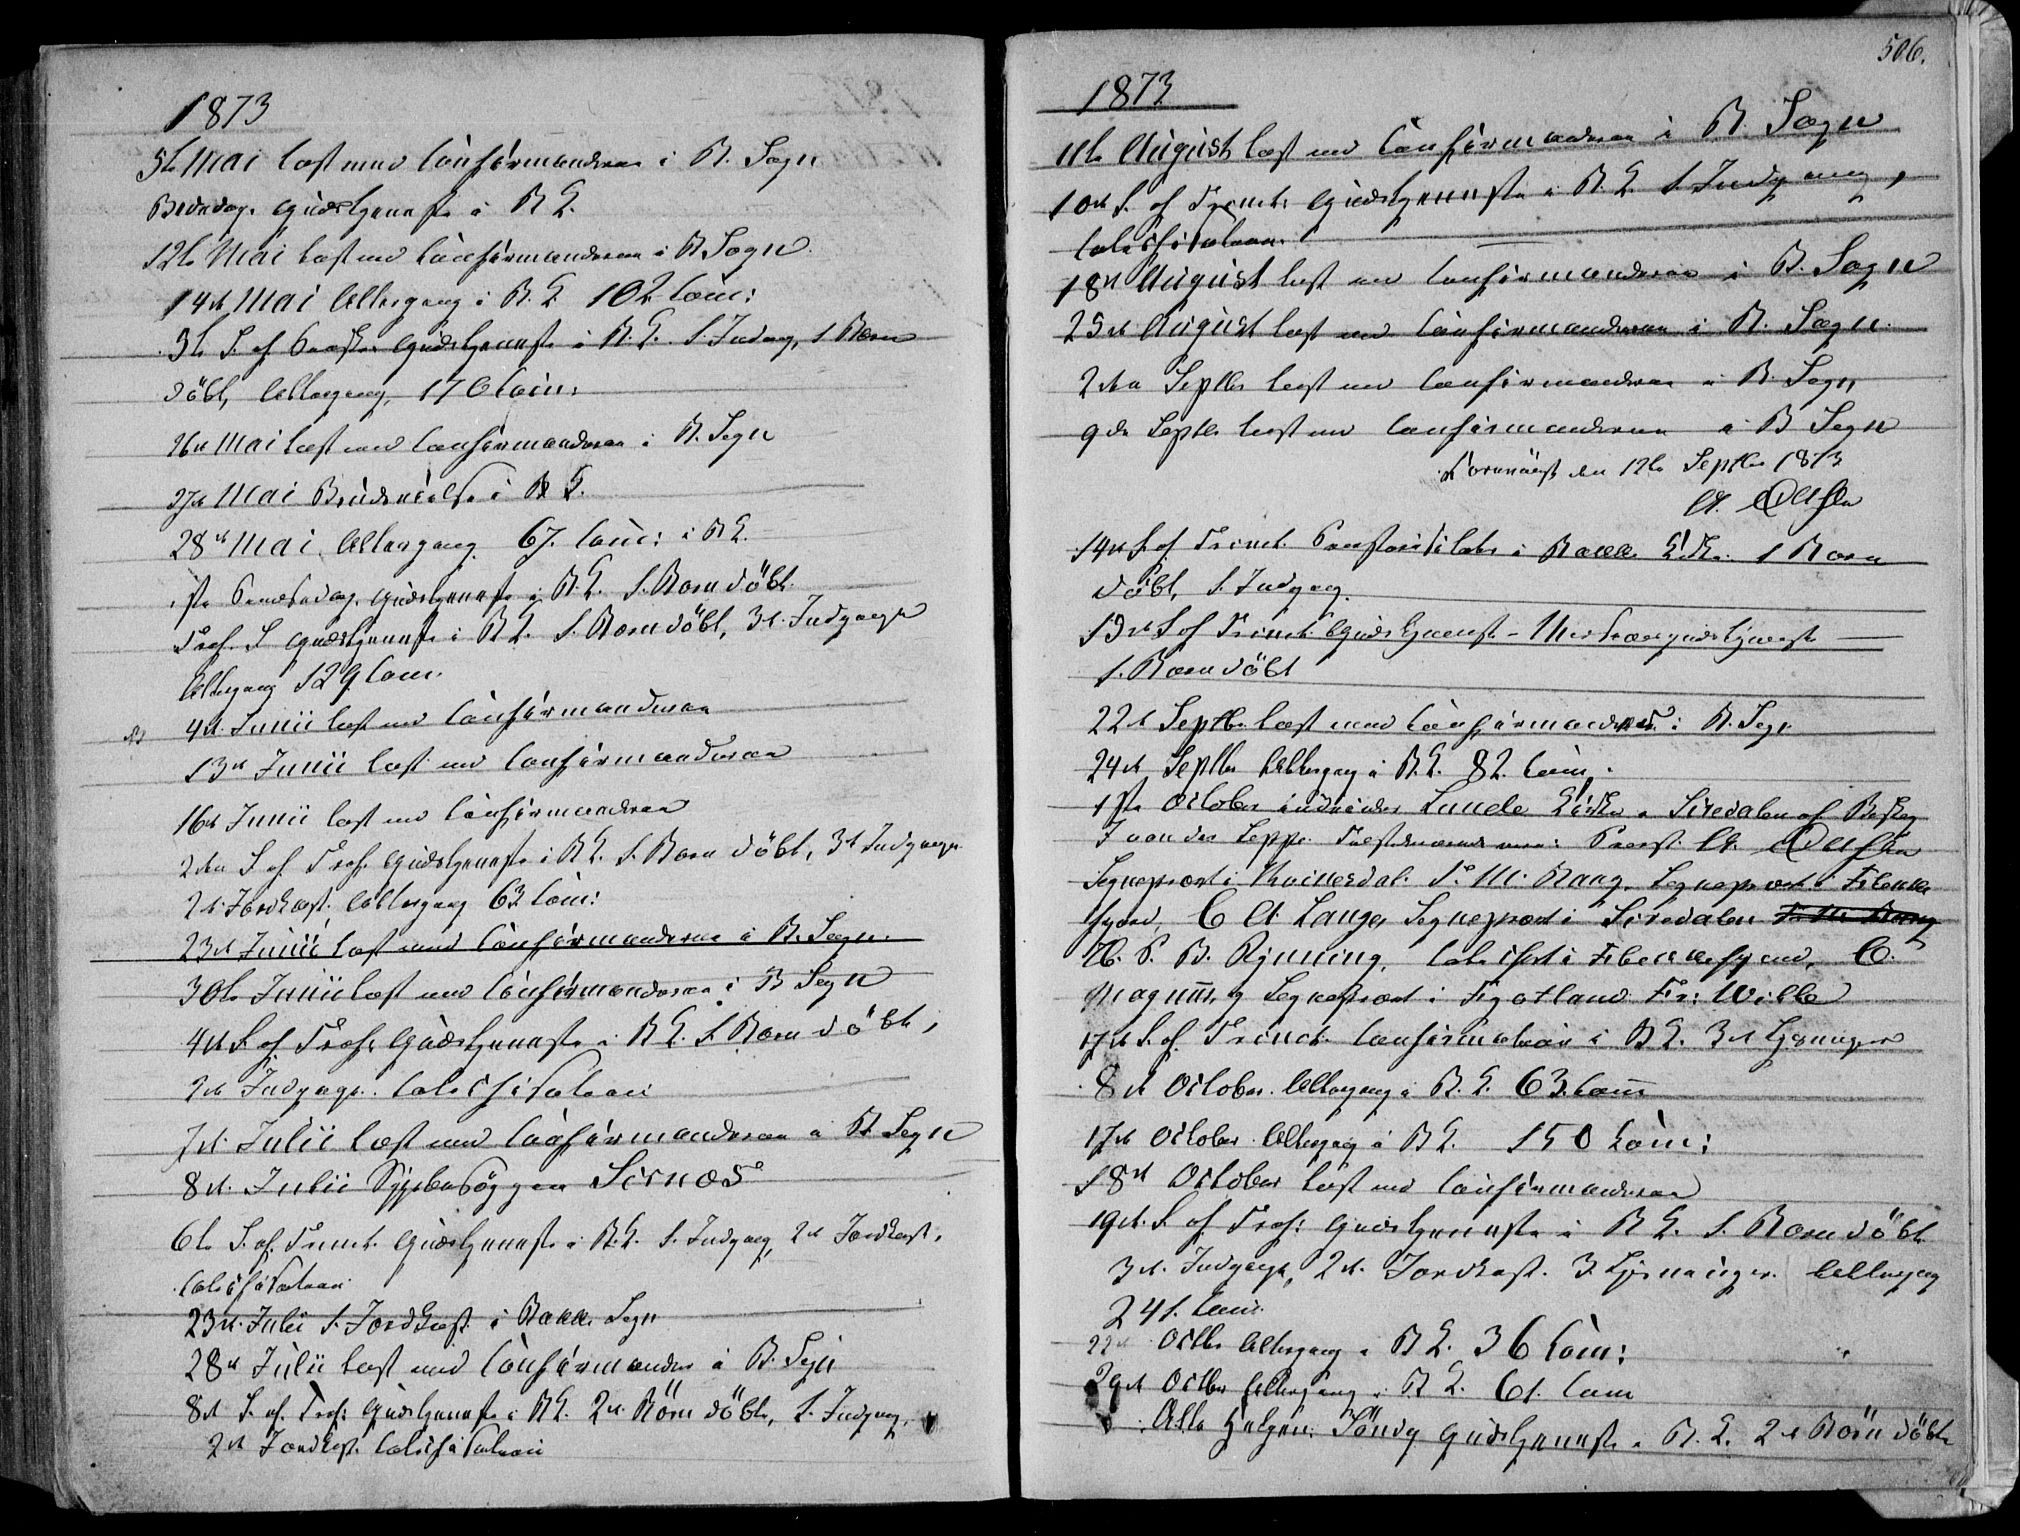 1873
5te Mai læst med Confirmanderne i B. Sogn
Bededag. Gudstjeneste i B K.
12te Mai læst med Confirmanderne i B Sogn
14de Mai Altergang i B. K. 102 Com:
5te S. ef Paaske Gudstjeneste i B. K. 1. Indg, 1 Barn
døbt, Altergang, 170 Com:
26de Mai læst med Confirmanderne i B. Sogn
27de Mai Brudevielse i B K.
28de Mai. Altergang 67. Com: i B K.
1ste Pindsedag. Gudstjeneste i B K. 1. Barn døbt.
Tref. S Gudstjeneste i B K. 1. Barn døbt, 3de Indgange
Altergang 129 Com.
4de Junii læst med Confirmanderne
13de Junii læst med Confirmanderne
16de Junii læst med Confirmanderne
2den S. ef Tref. Gudstjeneste i B K. 1. Barn døbt, 3de Indgange
2de Jordkast. Altergang 63 Com:
23de Junii læst med Confirmanderne i B. Sogn.
30te Junii læst med Confirmanderne i B Sogn
4de S. ef Tref. Gudstjeneste i B K. 1. Barn døbt,
2de Indgange. Catechisation
7de Julii læst med Confirmanderne i B Sogn
8de Julii Sygebesøg paa Sirnæs
6te S. ef. Trinit. Gudstjeneste i B. K. 1. Indgang, 2de Jordkast.
Catechisation
23de Julii 1. Jordkast i Bakke Sogn
28de Julii læst med Confirmander i B. Sogn
8de S. ef. Tref: Gudstjeneste i B K. 2de Børn døbte, 1. Indgang,
2de Jordkast. Catechisation
506.
1873
11te August læst med Confirmanderne i B. Sogn
10de S. ef Trinit: Gudstjeneste i B. K. 1. Indgang,
Catechisation.
18de August læst med Confirmanderne i B. Sogn
25de August læst med Confirmanderne i B. Sogn.
2den Septbr læst med Confirmanderne i B. Sogn
9de Septbr læst med Confirmanderne i B Sogn
den 12te Septbr 1873
14de S. ef Trinit. i Bakke Kirke. 1 Barn
døbt, 1. Indgang.
15de S ef Trinit. Gudstjeneste - Missionsgudstjeneste
1. Barn døbt
22de Septbr. læst med Confirmanderne i B. Sogn
24de Septbr Altergang i B. K. 82. Com.
1ste October indviedes Lunde Kirke i Siredalen af Biskop
J von der Lippe. Tilstedeværende vare: Provst A.
Sognepræst i Kvinesdal. S. M. Bang, Sognepræst i Flekke
fjord, C A Lange, Sognepræst i Siredalen
H. P. B. Rynning, Catechet i Flekkefjord, C.
Magnus, Sognepræst i Fjotland Fr: Wille
17de S. ef. Trinit. Confirmation i B K. 3de Lysninger
8de October. Altergang i B. K. 63. Com
17de October Altergang i B K. 150 Com:
18de October læst med Confirmanderne
19de S. ef Tref: Gudstjeneste i B K. 1. Barn døbt.
3de Indgange, 2de Jordkast. 3 Lysninger. Altergang
241. Com.
22de Octbr Altergang i B K. 36 Com:
29de Octbr Altergang i B K. 61. Com
Alle Helgen: Søndg Gudstjeneste i B. K. 2de Børn døbte